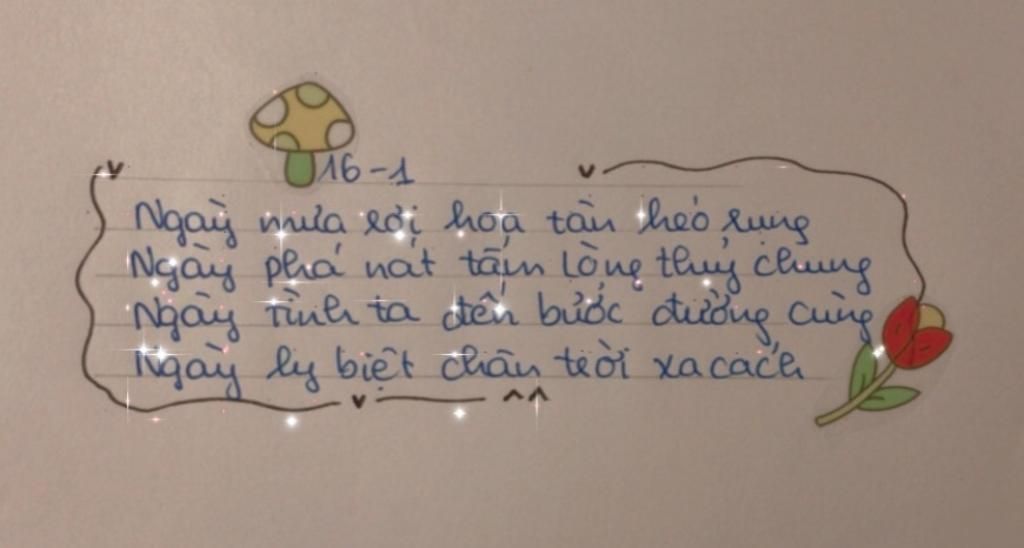 16-1
Ngày mưa rơi hoa tàn héo rung
Ngày phá nát tấm lòng thuỷ chung
Ngày tình ta đến bước đường cùng
Ngày ly biệt chân trời xa cách